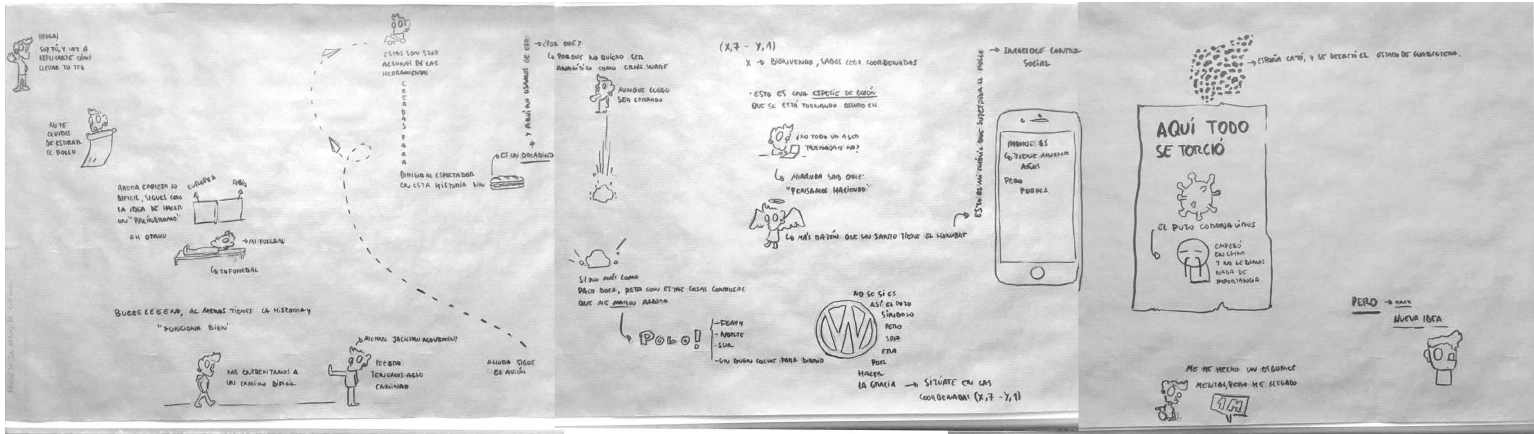 ¡HOLA!
SOY TÚ, Y VOY A
EXPLICARTE CÓMO
LLEVAR TU TFG
NO TE
OLVIDES
DE ESTIRAR
EL
AHORA EMPIEZA LO
DIFÍCIL, SIGUES CON
LA IDEA DE HACER
UN "PALÍNDROMO"
EUROPEA
OH OTAKU
MI FUNERAL
TU FUNERAL
BUENO LEGEND, AL MENOS TIENES LA HISTORIA Y
"FUNCIONA BIEN"
NOS ENFRENTAMOS A
UN CAMINO DIFÍCIL
PERO
TENEMOS ALGO
CAMINADO
AHORA SIGUE
EL AVIÓN
ESTAS SON SOLO
ALGUNAS DE LAS
HERRAMIENTAS
CREADAS PARA
DIRIGIR AL ESPECTADOR
EN ESTA HISTORIA SIN
ES UN BOCADILLO
Y AQUÍ NO USAMOS DE ESO
¿POR QUÉ?
PORQUE NO QUIERO SER
ANALÍTICO COMO CHRIS WARE
AUNQUE LUEGO
SEA
SI NO MÁS COMO
PACO ROCA, PERO CON ESTAS COSAS CONFUSAS
QUE ME MARCO AHORA
POLO!
- DEATH
- NORTE
- SUR
- UN BUEN COCHE PARA DIARIO
(X,7 - Y,1)
X → BIENVENIDO, SABES LEER COORDENADAS
· ESTO ES UNA ESPECIE DE GUIÓN
QUE SE ESTÁ TORNANDO OSCURO EN.
¿NO TODO UN ASCO
TERMINADO NO?
MIRANDA SAID QUE:
"PENSAMOS HACIENDO"
MÁS RAZÓN QUE UN SANTO TIENE EL
NO SE SI ES
ASÍ EL PUTO
SÍMBOLO
PERO
SOLO
ERA
POR
HACER
LA GRACIA → SITÚATE EN LAS
COORDENADAS (X,7 - Y,1)
ESTO ES MI MÓVIL QUE
INCREÍBLE CONTROL
SOCIAL
IPHONE 6S
TIENE MUCHOS
AÑOS
PERO
ESPAÑA CAYÓ, Y SE DECRETÓ EL ESTADO DE CUARENTENA.
AQUÍ TODO
SE TORCIÓ
EL PUTO CORONAVIRUS
EMPEZÓ
EN CHINA
Y NO LE DIMOS
NADA DE
IMPORTANCIA.
PERO
NUEVA IDEA
ME HE HECHO UN ESGUINCE
MENTAL, PERO HE LLEGADO